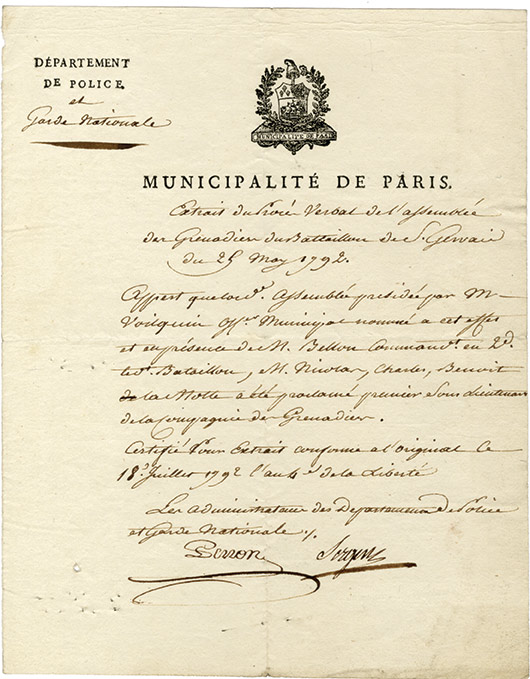 DÉPARTEMENT
DE POLICE.
et
Garde Nationale
MUNICIPALITÉ DE PARIS
MUNICIPALITÉ DE PARIS.
Extrait du Procé Verbal de l'assemblée
des Grenadier du Bataillon de St. Gervais
du 25 May 1792.
Appert que lad. Assemblée présidée par M.
Voilquin Offr. Municipal nommé a cet effet
et en présence de M. Bellon Command.t en 2d.
led. Bataillon, M. Nicolas, Charles, Benoit
de la Motte a été proclamé premier Sous Lieutenant
de la Compagnie des Grenadier.
Certifié Pour Extrait conforme a l'original le
18. Juillet 1792 l'an 4e. de la Liberté
Les administrateur des Departement de Police
et Garde Nationale /.
Perron Sergent